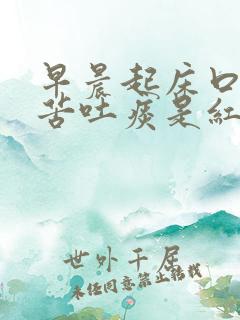 早晨起床口
苦吐痰是紅
世外千居
未经同意禁止转载